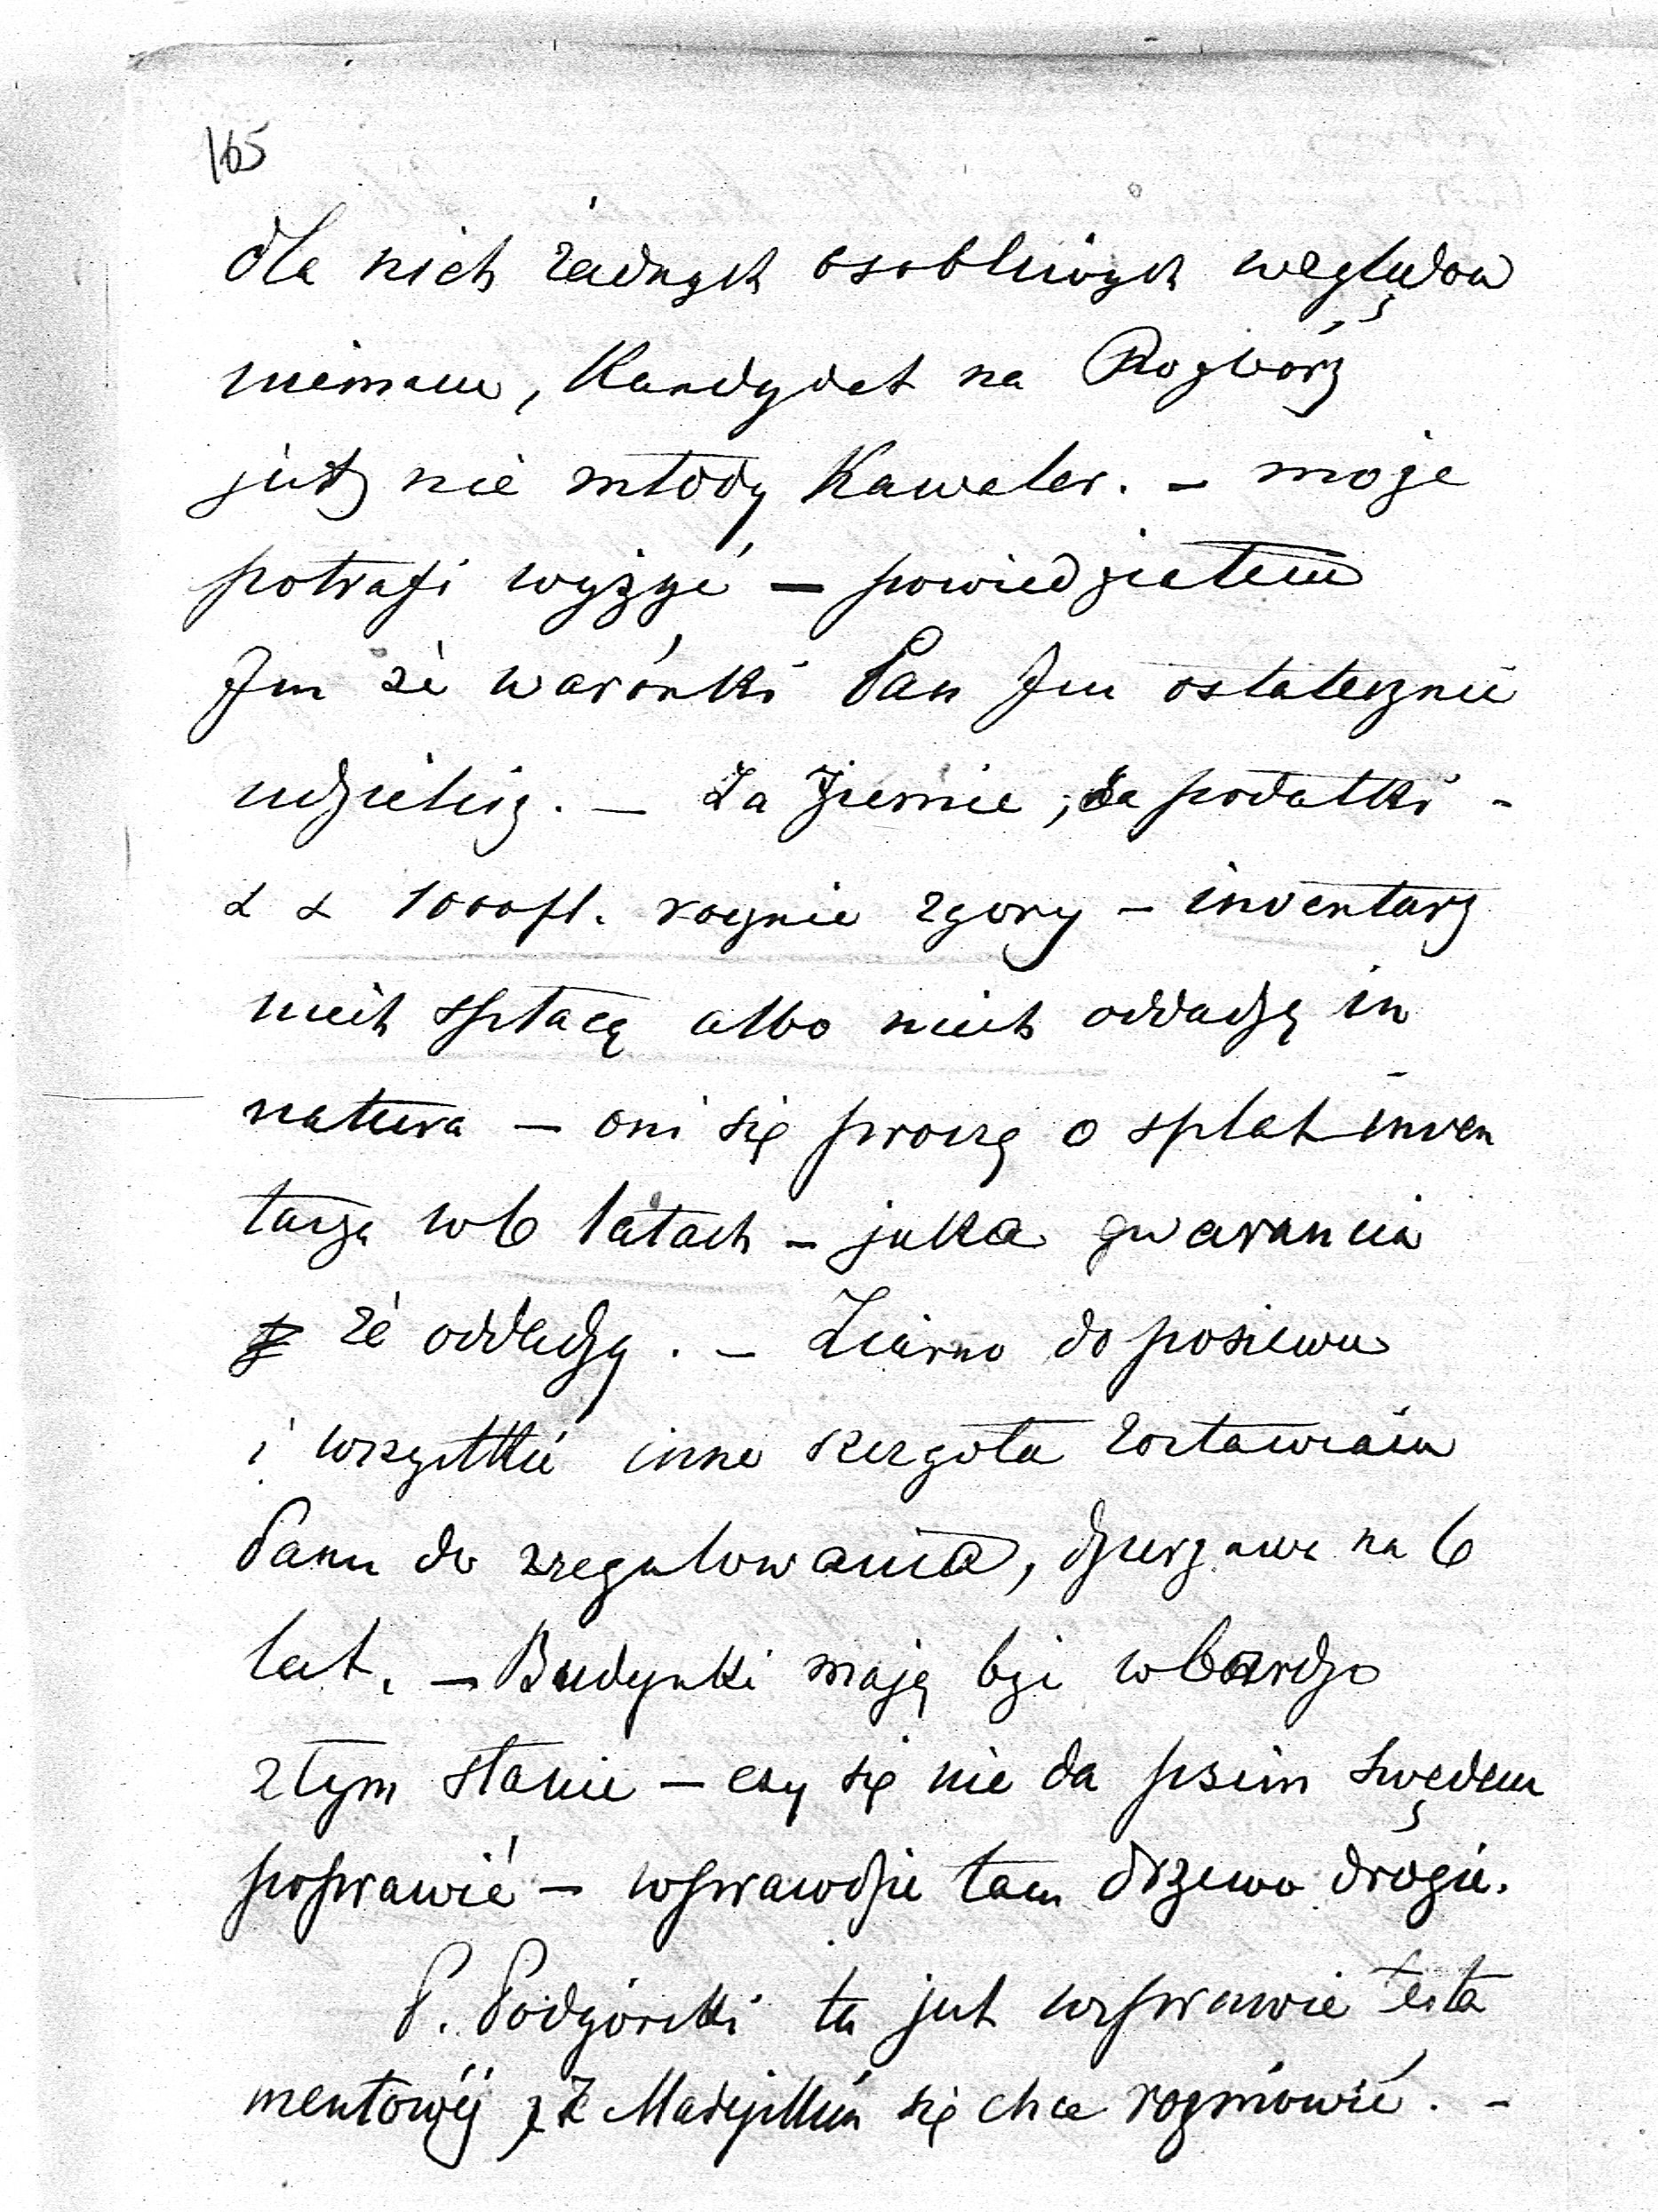 165
dla nich żadnych osobliwych względów
niemam, Kandydat na Rozbórz
już nie młody Kawaler. – może
potrafi wyżyć – powiedziałem
Im że warónki Pan Im ostatecznie
udzielisz. – Za Ziemie, za podatki –
& & 1000 fl. rocznie zgóry – inventarz
niech spłacą albo niech oddadzą in
natura – oni się proszą o spłat inwen
tarza w 6 latach – jaka gwarancia
że oddadzą. – Ziarno do posiewu
i wszystkie inne szczegóła zostawiam
Panu do zregulowania, dzierzawa na 6
lat. – Budynki mają być w bardzo
złym stanie – czy się nie da psim swędem
poprawić – wprawdzie tam drzewo drogie.
P. Podgórski tu jest w sprawie testa
mentowéj, Z Madejskim się chce rozmówić. –